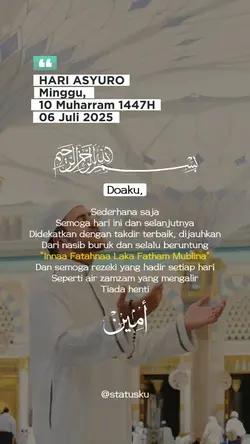 HARI ASYURO
Minggu,
10 Muharram 1447H
06 Juli 2025
بسم الله الرحمن الرحيم
Doaku,
Sederhana saja
Semoga hari ini dan selanjutnya
Didekatkan dengan takdir terbaik, dijauhkan
Dari nasib buruk dan selalu beruntung
"Innaa Fatahnaa Laka Fatham Mubiina"
Dan semoga rezeki yang hadir setiap hari
Seperti air zamzam yang mengalir
Tiada henti
أمين
@statusku